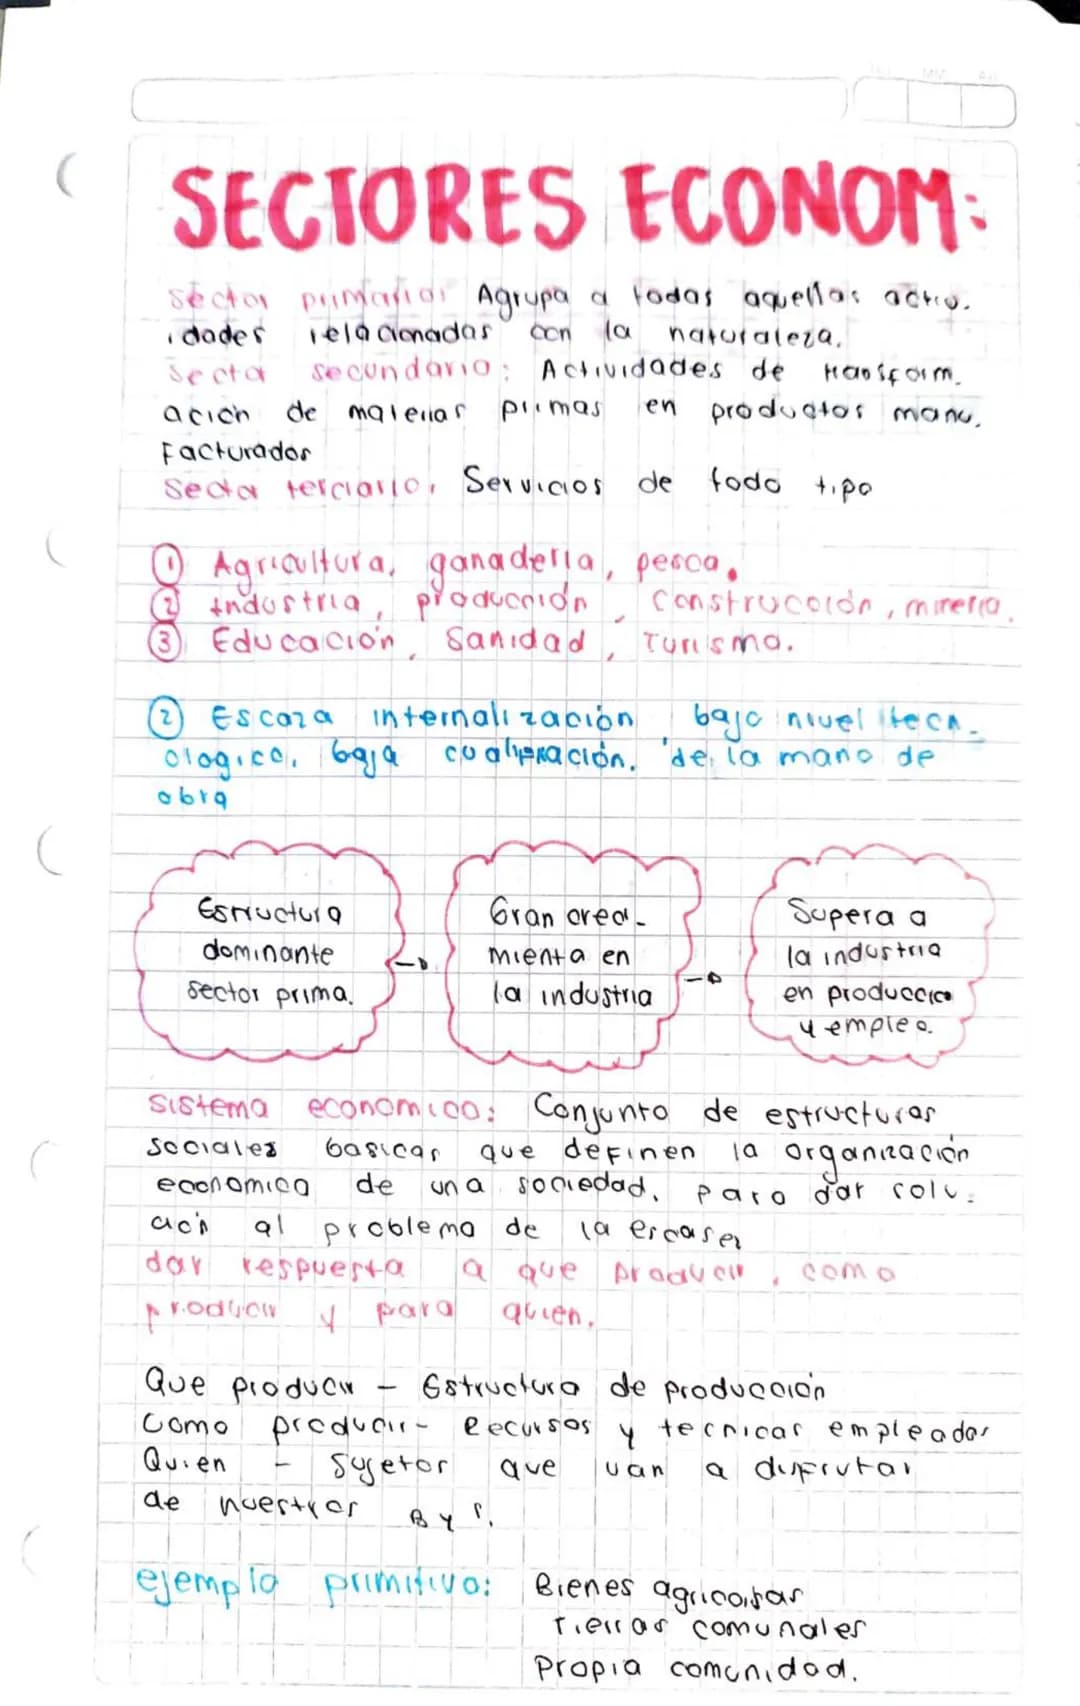 SECTORES ECONOM:
Sector primario: Agrupa a todas aquellas activ-
idades relacionadas con la naturaleza.
Sector secundario: Actividades de transform-
ación de materias primas en productos manu-
facturados
Sector terciario: Servicios de todo tipo
① Agricultura, ganaderia, pesca.
② Industria, producción, Construcción, mineria.
③ Educación, Sanidad, Turismo.
② Escaza internalización, bajo nivel tecn-
ologico, baja cualificación. de la mano de
obra
Estructura
dominante
sector prima.
Gran creci-
miento en
la industria
Supera a
la industria
en produccio
y empleo.
Sistema economico: Conjunto de estructuras
sociales basicas que definen la organización
economica de una sociedad, para dar solu-
ción al problema de la escasez
dar respuesta a que producir, como
producir y para quien.
Que producir - Estructura de producción
Como producir - Recursos y tecnicas empleadas
Quien - Sujetos que van a disfrutar
de nuestros B y S.
ejemplo primitivo: Bienes
Tierras comunales
Propia comunidad.